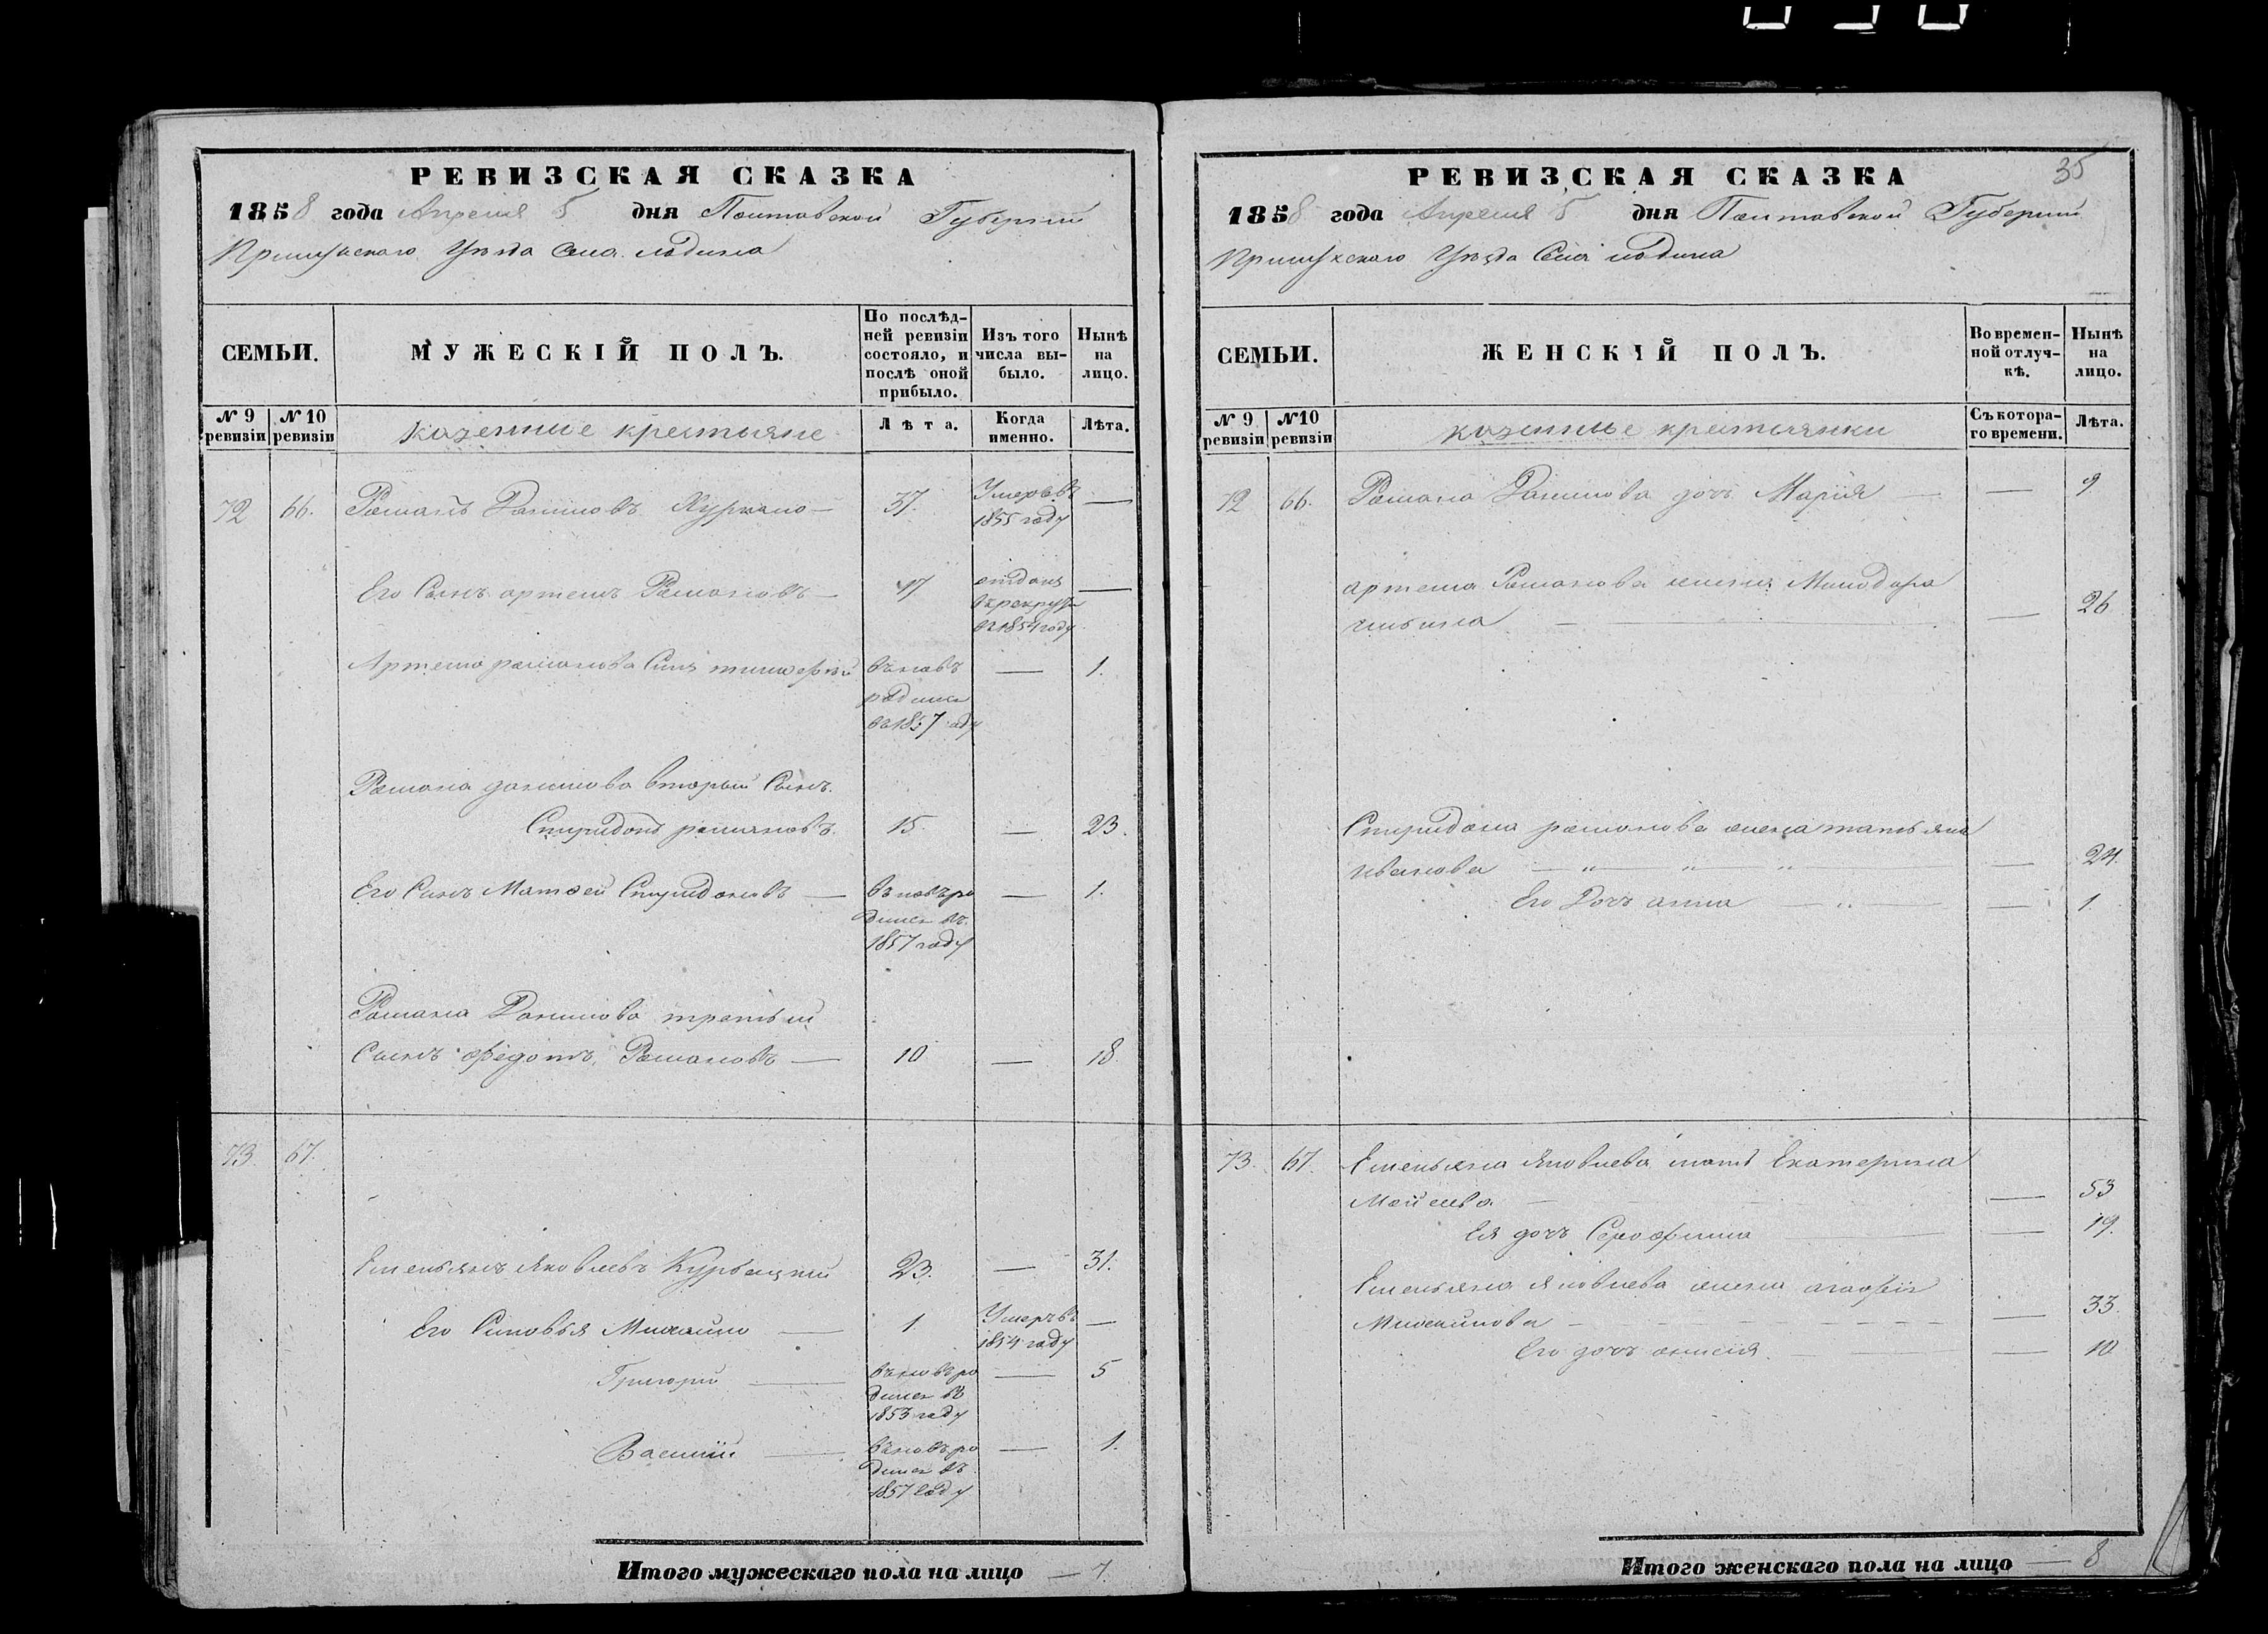 РЕВИЗСКАЯ СКАЗКА
1858 года Апреля 5 дня Полтавской Губернїи
Прилуцкаго Уѣзда Села Ладина
СЕМЬИ.
МУЖЕСКІЙ ПОЛЪ.
По послѣд-
ней ревизіи
состояло, и
послѣ оной
прибыло.
Изъ того
числа вы-
было.
Нынѣ
на
лицо.
№ 9
ревизіи
№ 10
ревизіи
казенные крестьяне
Лѣта.
Когда
именно.
Лѣта.
72 66. Романъ Даниловъ 37. Умеръ въ —
1855 году
Его Сынъ артемъ Романовъ — 17 отданъ —
в рекруты
въ 1854 году
Артема романова Синъ тимофѣй вновъ — 1.
родился
въ 1857 году
Романа данилова вторый Сынъ
Спиридонъ романовъ. 15. — 23.
Его Синъ Матвей Спиридоновъ — вновъ ро — 1.
дился въ
1857 году
Романа Данилова третьій
Сынъ федотъ Романовъ — 10 — 18.
73. 67.
Емельянъ Яковлевъ Курбацкий 23. — 31.
Его Синовья Михайло — 1 Умеръ въ —
1854 году
Григорій — вновъ ро — 5
дился въ
1853 году
Василїй — вновъ ро — 1.
дился въ
1857 году
Итого мужескаго пола на лицо — 7
35
РЕВИЗСКАЯ СКАЗКА
1858 года Апреля 5 дня Полтавской Губерніи
Прилуцкаго Уѣзда Села Ладина
СЕМЬИ.
ЖЕНСКІЙ ПОЛЪ.
Во времен-
ной отлуч-
кѣ.
Нынѣ
на
лицо.
№ 9
ревизіи
№ 10
ревизіи
казенные крестьянки
Съ котора-
го времени.
Лѣта.
72 66. Романа Данилова дочь Марїя — — 9
артема Романова жена Минодора
— — 26
Спиридона романова жена татьяна
иванова — " — " — " — — 24.
Его Дочь анна — " — — 1.
73. 67. Емельяна Яковлева мать Екатерина
— — 53
Ея дочь Серафима — — 19.
Емельяна Яковлева жена агафія
— — 33.
Его дочь анисія — — 10
Итого женскаго пола на лицо — 8